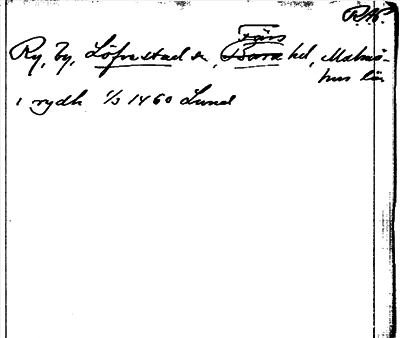 R.A.
Färs
Ry, by, Löfvestad sn, Bara hd, Malmö-
hus län
i rydh 1/3 1460 Lund